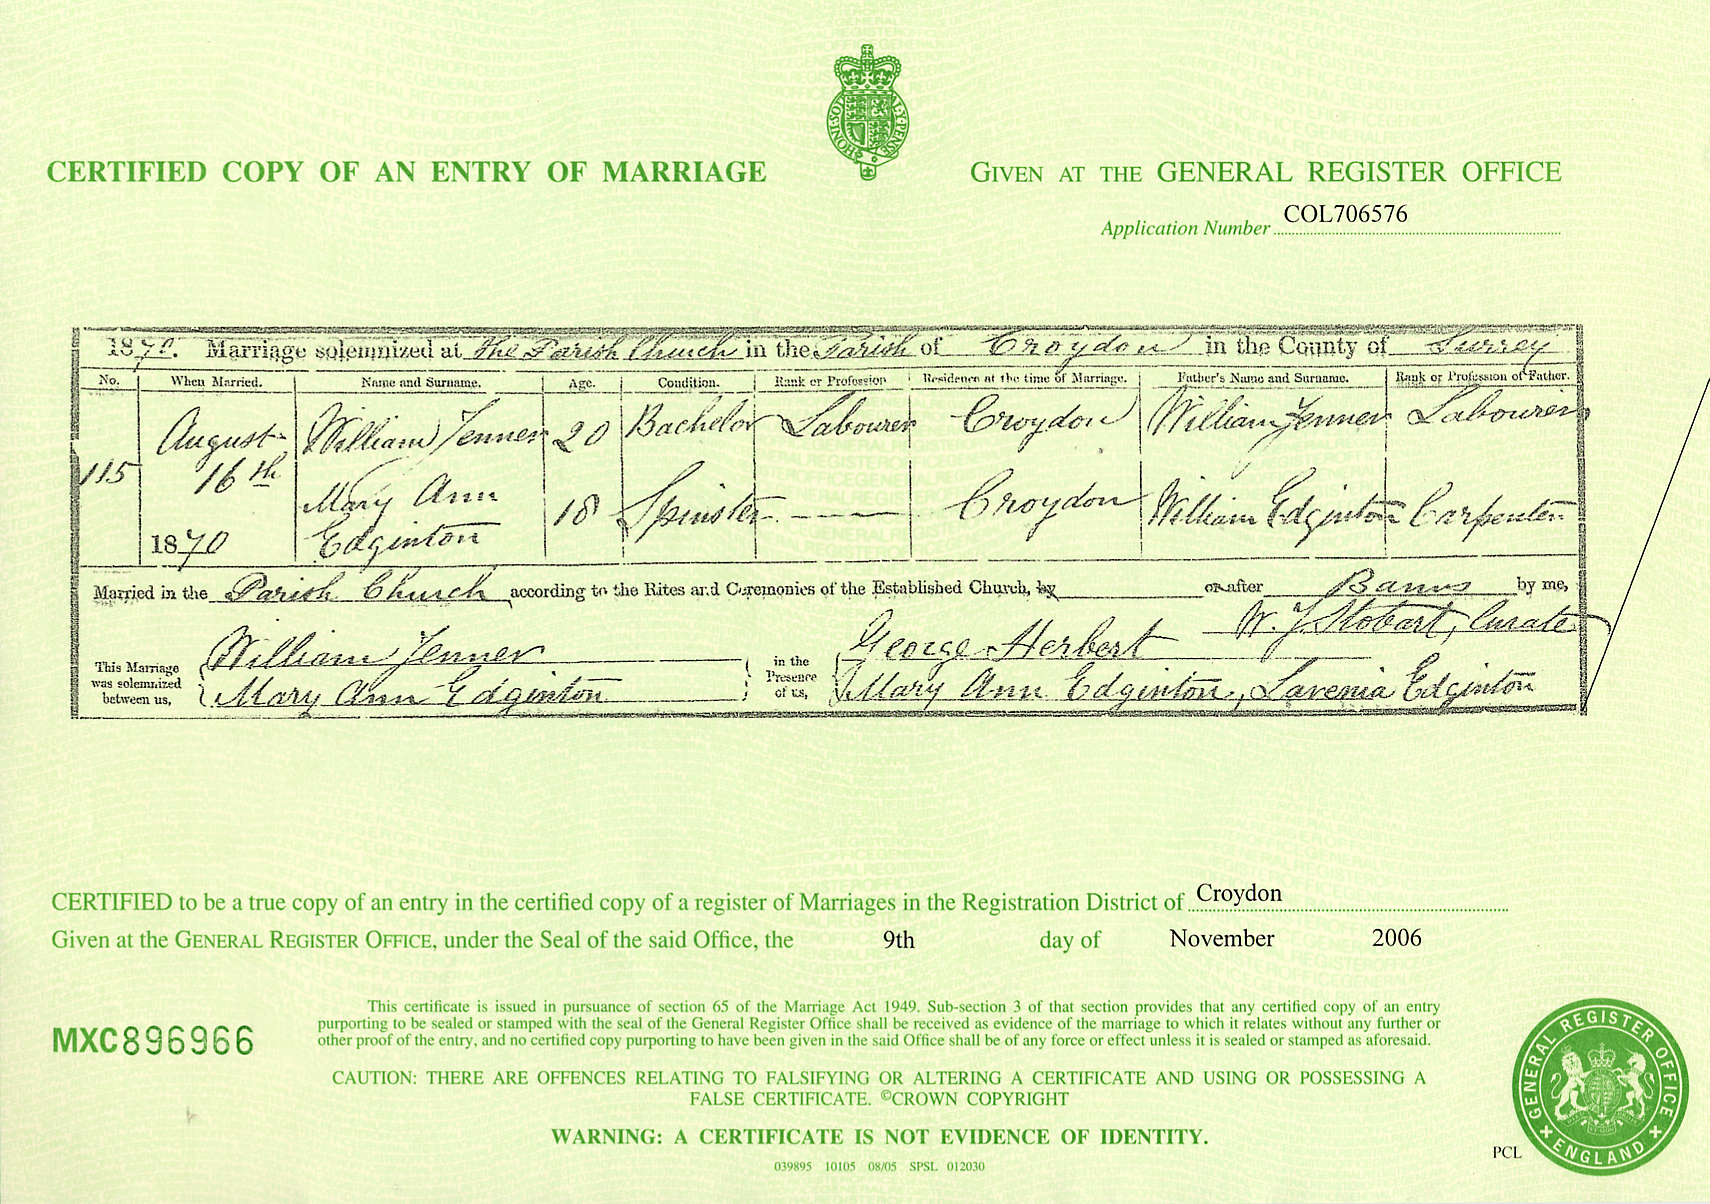 HONI·SOIT
Y·PENSE
CERTIFIED COPY OF AN ENTRY OF MARRIAGE
GIVEN AT THE GENERAL REGISTER OFFICE
Application Number COL706576
1870. Marriage solemnized at the Parish Church in the Parish of Croydon in the County of Surrey
No. When Married. Name and Surname. Age. Condition. Rank or Profession Residence at the time of Marriage. Father's Name and Surname. Rank or Profession of Father.
115 August 16th 1870
William Jenner 20 Bachelor Labourer Croydon William Jenner Labourer
Mary Ann Edginton 18 Spinster ——— Croydon William Edginton Carpenter
Married in the Parish Church according to the Rites and Ceremonies of the Established Church, by or after Banns by me,
W. J. Stobart, Curate
This Marriage was solemnized between us,
William Jenner
Mary Ann Edginton
in the Presence of us,
George Herbert
Mary Ann Edginton, Lavenia Edginton
CERTIFIED to be a true copy of an entry in the certified copy of a register of Marriages in the Registration District of Croydon
Given at the GENERAL REGISTER OFFICE, under the Seal of the said Office, the 9th day of November 2006
MXC896966
This certificate is issued in pursuance of section 65 of the Marriage Act 1949. Sub-section 3 of that section provides that any certified copy of an entry
purporting to be sealed or stamped with the seal of the General Register Office shall be received as evidence of the marriage to which it relates without any further or
other proof of the entry, and no certified copy purporting to have been given in the said Office shall be of any force or effect unless it is sealed or stamped as aforesaid.
CAUTION: THERE ARE OFFENCES RELATING TO FALSIFYING OR ALTERING A CERTIFICATE AND USING OR POSSESSING A
FALSE CERTIFICATE. ©CROWN COPYRIGHT
WARNING: A CERTIFICATE IS NOT EVIDENCE OF IDENTITY.
039895 10105 08/05 SPSL 012030
PCL
GENERAL REGISTER OFFICE
ENGLAND